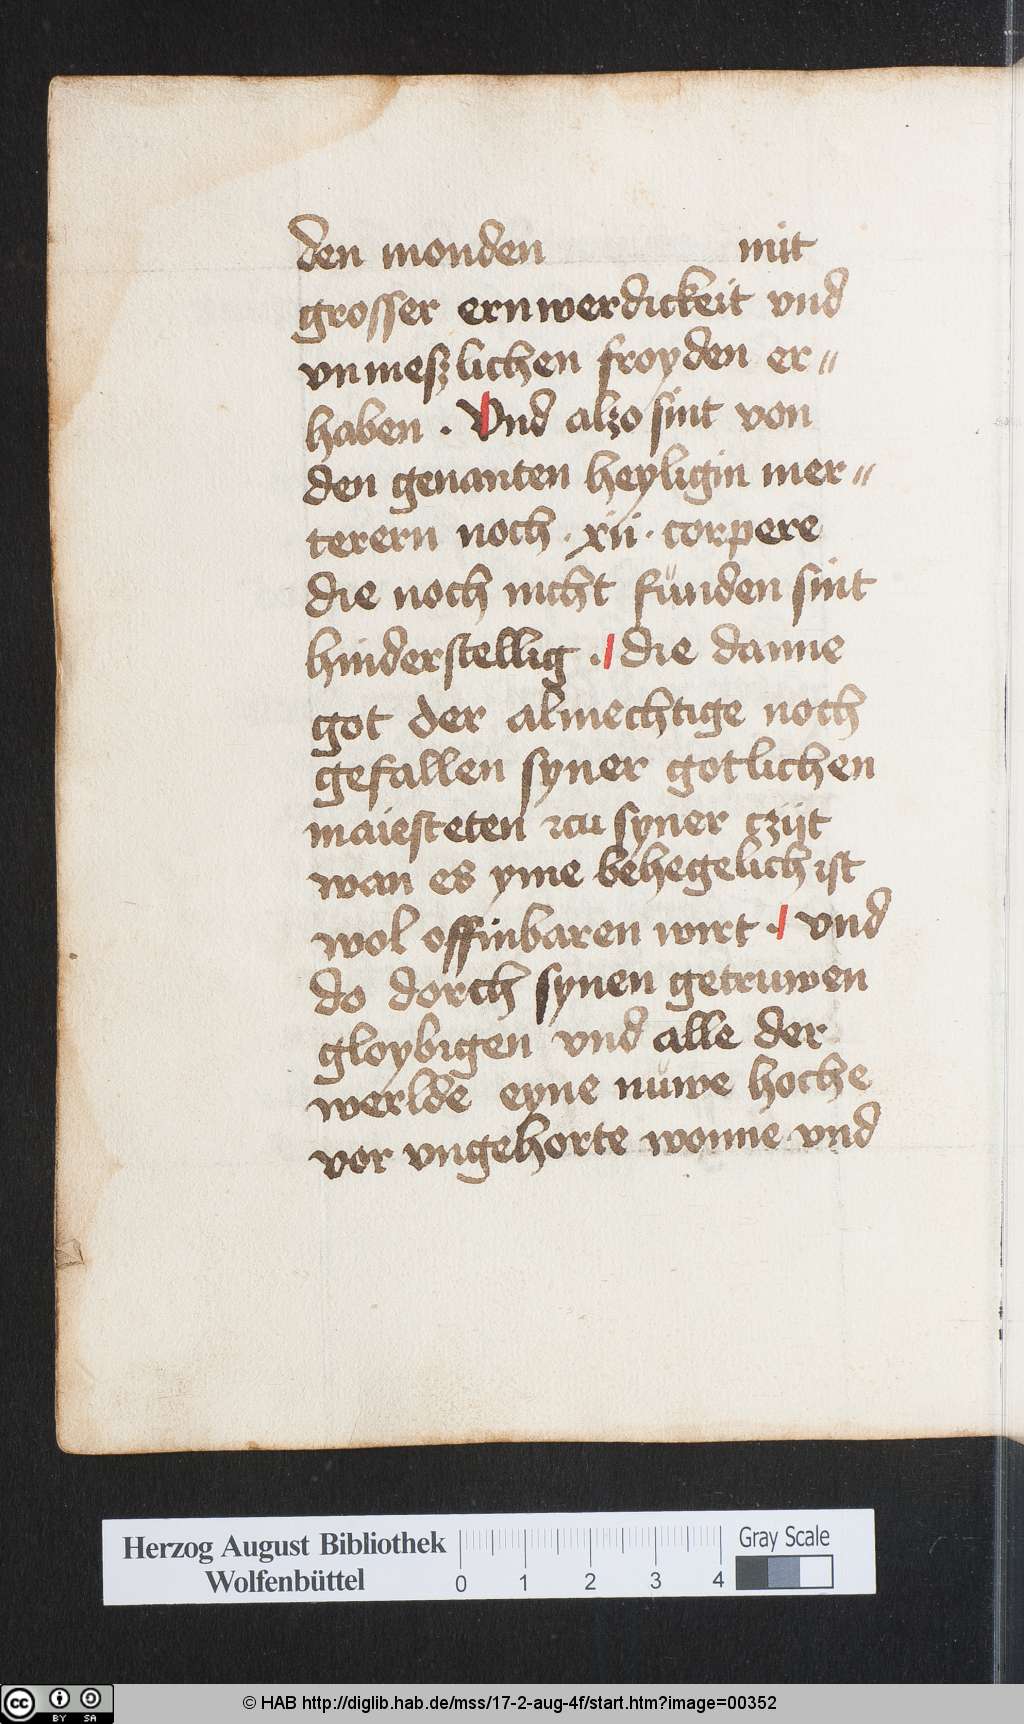 den monden mit
grosser ernwerdickeit vnd
vnmeszlichen froyden er〃
haben . Vnd alzo sint von
den genanten heyligin mer〃
terern noch · xii · corpere
die noch nicht fůnden sint
hinderstellig . die danne
got der almechtige noch
gefallen syner gotlichen
maiesteten zcu syner czijt
wan es yme behegelich ist
wol offinbaren wirt . vnd
do dorch synen getruwen
gloybigen vnd alle der
werlde eyne nůwe hoche
vor vngehorte wonne vnd
Herzog August Bibliothek
Wolfenbüttel
0 1 2 3 4
Gray Scale
cc BY SA
© HAB http://diglib.hab.de/mss/17-2-aug-4f/start.htm?image=00352